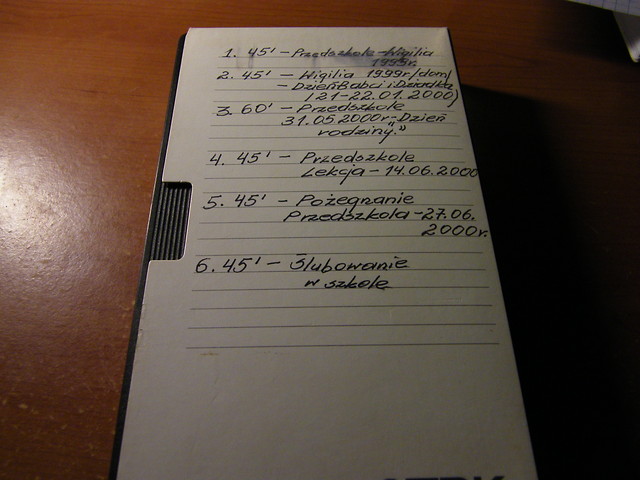 1. 45' - Przedszkole-Wigilia
1999r.
2. 45' - Wigilia 1999r/dom/
- Dzień Babci i Dziadka
(21-22.01.2000)
3. 60' - Przedszkole
31.05.2000r-Dzień
rodziny."
4. 45' - Przedszkole
Lekcja - 14.06.2000
5. 45' - Pożegnanie
Przedszkola -27.06.
2000r.
6. 45' - Ślubowanie
w szkole